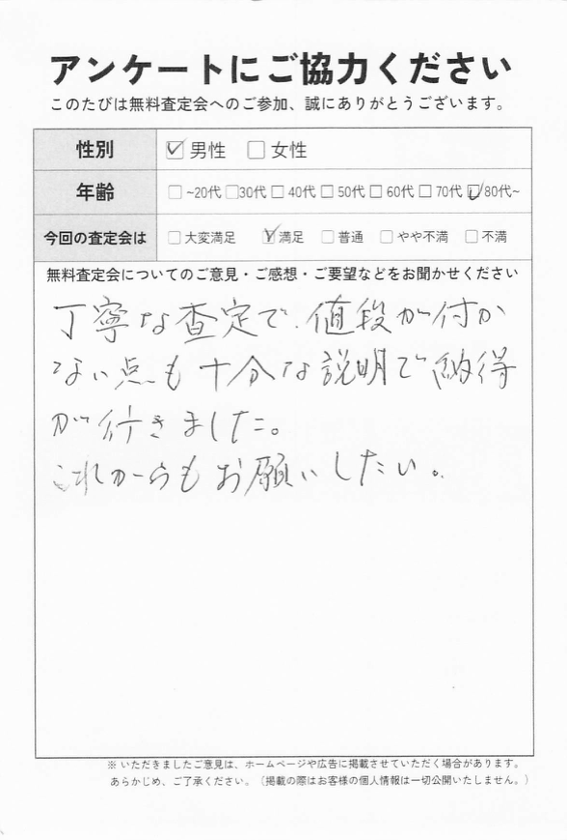 アンケートにご協力ください
このたびは無料査定会へのご参加、誠にありがとうございます。
性別 ☑男性 □女性
年齢 □~20代 □30代 □40代 □50代 □60代 □70代 ☑80代~
今回の査定会は □大変満足 ☑満足 □普通 □やや不満 □不満
無料査定会についてのご意見・ご感想・ご要望などをお聞かせください
丁寧な査定で、値段が付か
ない点も十分な説明で納得
が行きました。
これからもお願いしたい。
※ いただきましたご意見は、ホームページや広告に掲載させていただく場合があります。
あらかじめ、ご了承ください。（掲載の際はお客様の個人情報は一切公開いたしません。）